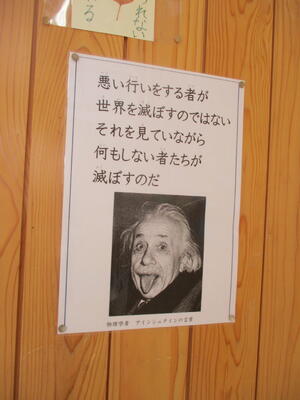 られない
る
悪い行いをする者が
世界を滅ぼすのではない
それを見ていながら
何もしない者たちが
滅ぼすのだ
物理学者 アインシュタインの言葉